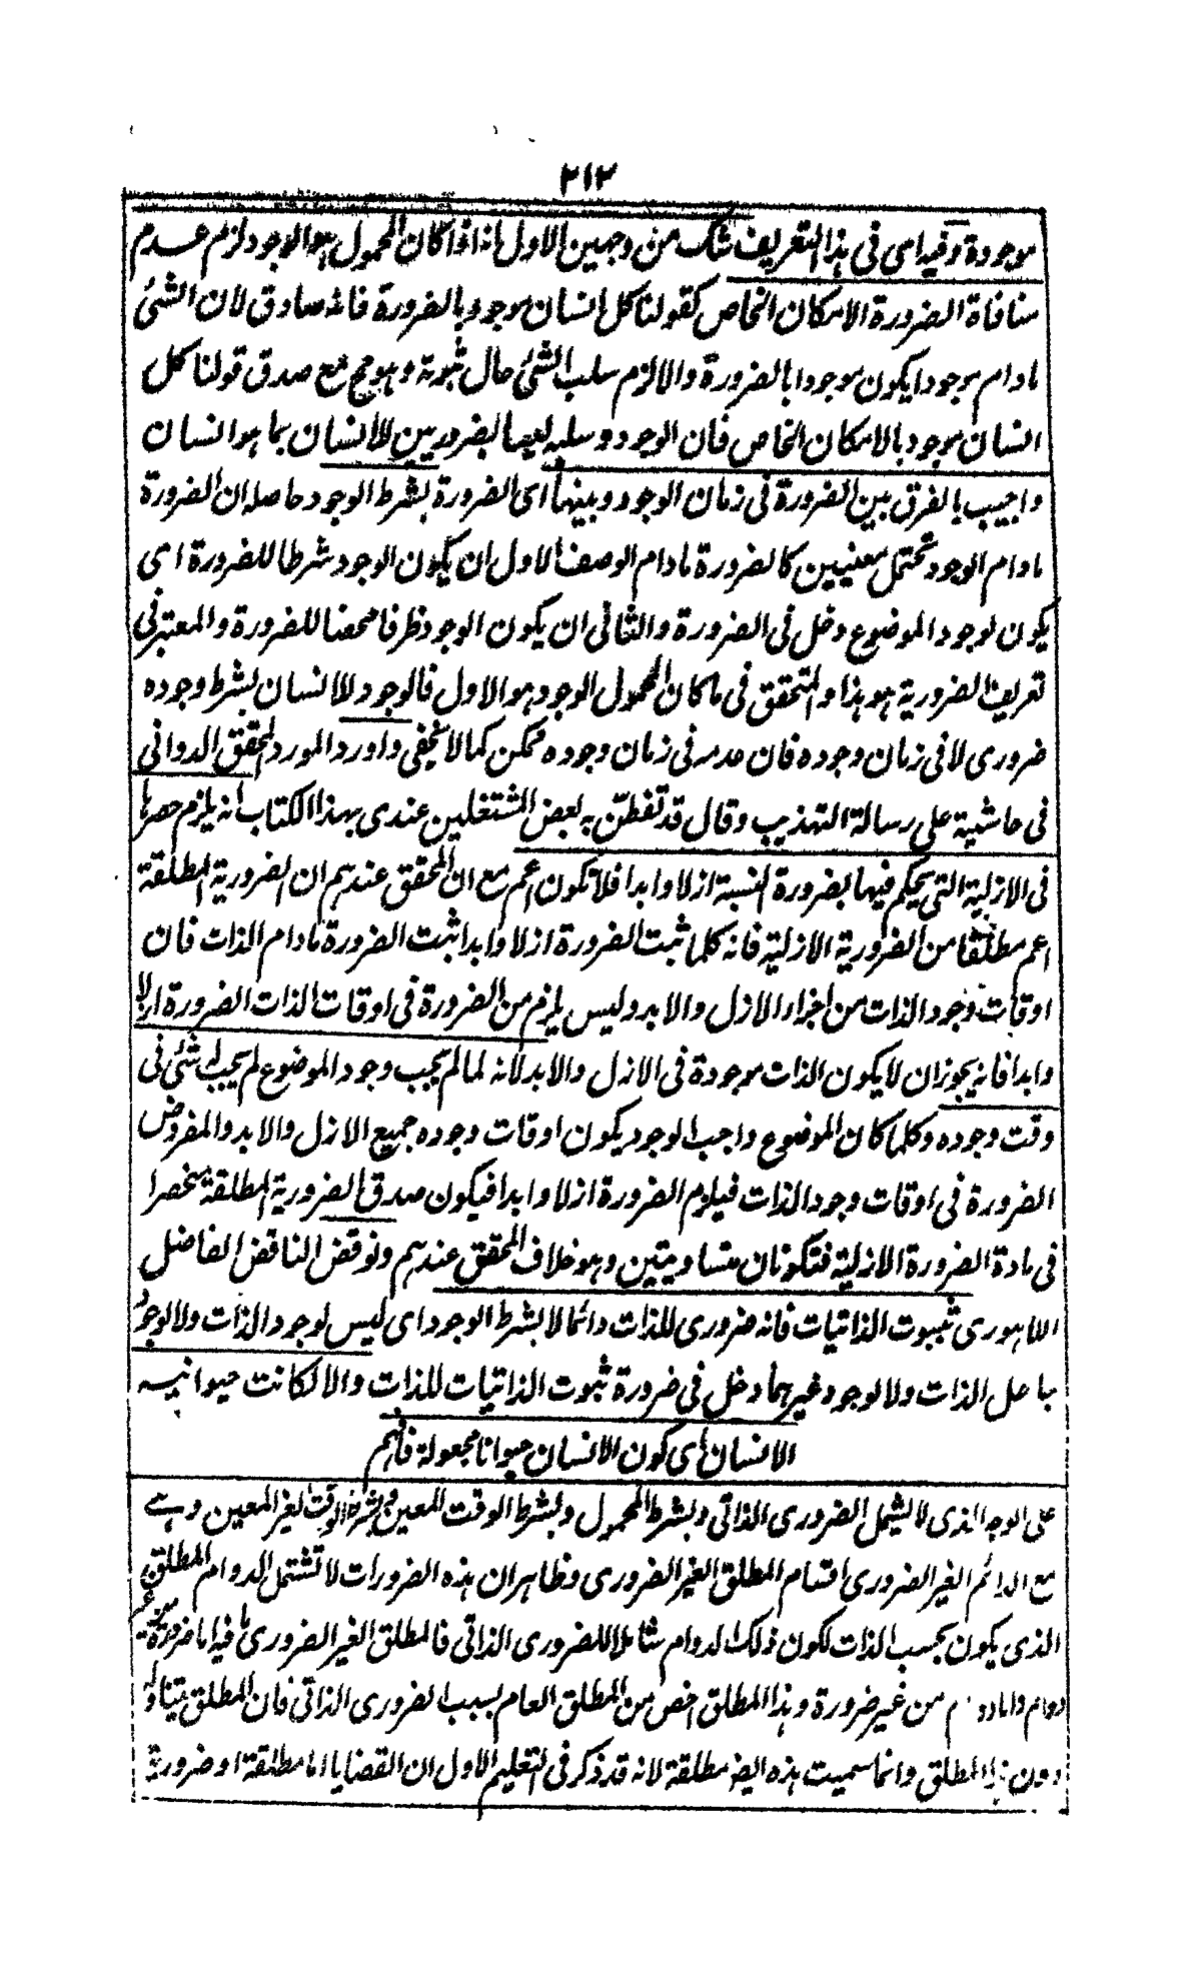 ٢١٢
موجودة وفيه اى فى هذا التعريف شك من وجهين الاول انه اذا كان المحمول هو الوجود لزم عدم
منافاة الضرورة الامكان الخاص كقولنا كل انسان موجود بالضرورة فانه صادق لان الشئ
مادام موجودا يكون موجودا بالضرورة والا لزم سلب الشئ حال ثبوته وهو مح مع صدق قولنا كل
انسان موجود بالامكان الخاص فان الوجود وسلبه ليسا بضروريين للانسان بما هو انسان
واجيب بالفرق بين الضرورة فى زمان الوجود وبينها اى الضرورة بشرط الوجود حاصله ان الضرورة
مادام الوجود تحتمل معنيين كالضرورة مادام الوصف الاول ان يكون الوجود شرطا للضرورة اى
يكون لوجود الموضوع دخل فى الضرورة والثانى ان يكون الوجود ظرفا محضا للضرورة والمعتبر فى
تعريف الضرورية هو هذا والمتحقق فى ما كان المحمول الوجود هو الاول فالوجود للانسان بشرط وجوده
ضرورى لا فى زمان وجوده فان عدمه فى زمان وجوده ممكن كما لا يخفى واورد المورد المحقق الدوانى
فى حاشية على رسالة التهذيب وقال قد تفطّن به بعض المشتغلين عندى بهذا الكتاب انه يلزم حصرها
فى الازلية التى يحكم فيها بضرورة النسبة ازلا وابدا فلا تكون اعم مع ان المحقق عندهم ان الضرورية المطلقة
اعم مطلقا من الضرورية الازلية فانه كلما ثبت الضرورة ازلا وابدا ثبت الضرورة مادام الذات فان
اوقات وجود الذات من اجزاء الازل والابد وليس يلزم من الضرورة فى اوقات الذات الضرورة ازلا
وابدا فانه يجوز ان لا يكون الذات موجودة فى الازل والابد لانه لما لم يجب وجود الموضوع لم يجب له شئ فى
وقت وجوده وكلما كان الموضوع واجب الوجود يكون اوقات وجوده جميع الازل والابد والمفروض
الضرورة فى اوقات وجود الذات فيلزم الضرورة ازلا وابدا فيكون صدق الضرورية المطلقة منحصرا
فى مادة الضرورة الازلية فتكونان متساويتين وهو خلاف المحقق عندهم ونوقض الناقض الفاضل
اللاهورى بثبوت الذاتيات فانه ضرورى للذات دائما لا بشرط الوجود اى ليس لوجود الذات ولا لوجود
جاعل الذات ولا لوجود غيرهما دخل فى ضرورة ثبوت الذاتيات للذات والا لكانت حيوانية
الانسان اى كون الانسان حيوانا مجعولة فافهم
على الوجه الذى لا يشمل الضرورى الذاتى وبشرط المحمول وبشرط الوقت المعين وبشرط الوقت الغير المعين وهے
مع الدائم الغير الضرورى اقسام المطلق الغير الضرورى وظاهر ان هذه الضرورات لا تشتمل الدوام المطلق
الذى يكون بحسب الذات لكون ذلك الدوام شاملا للضرورى الذاتى فالمطلق الغير الضرورى ما فيه اما ضرورة
دوام من غير ضرورة وهذا المطلق اخص من المطلق العام بسبب الضرورى الذاتى فان المطلق يتناوله
دون هذا المطلق وانما سميت هذه ايضا مطلقة لانه قد ذكر فى التعليم الاول ان القضايا اما مطلقة او ضرورية